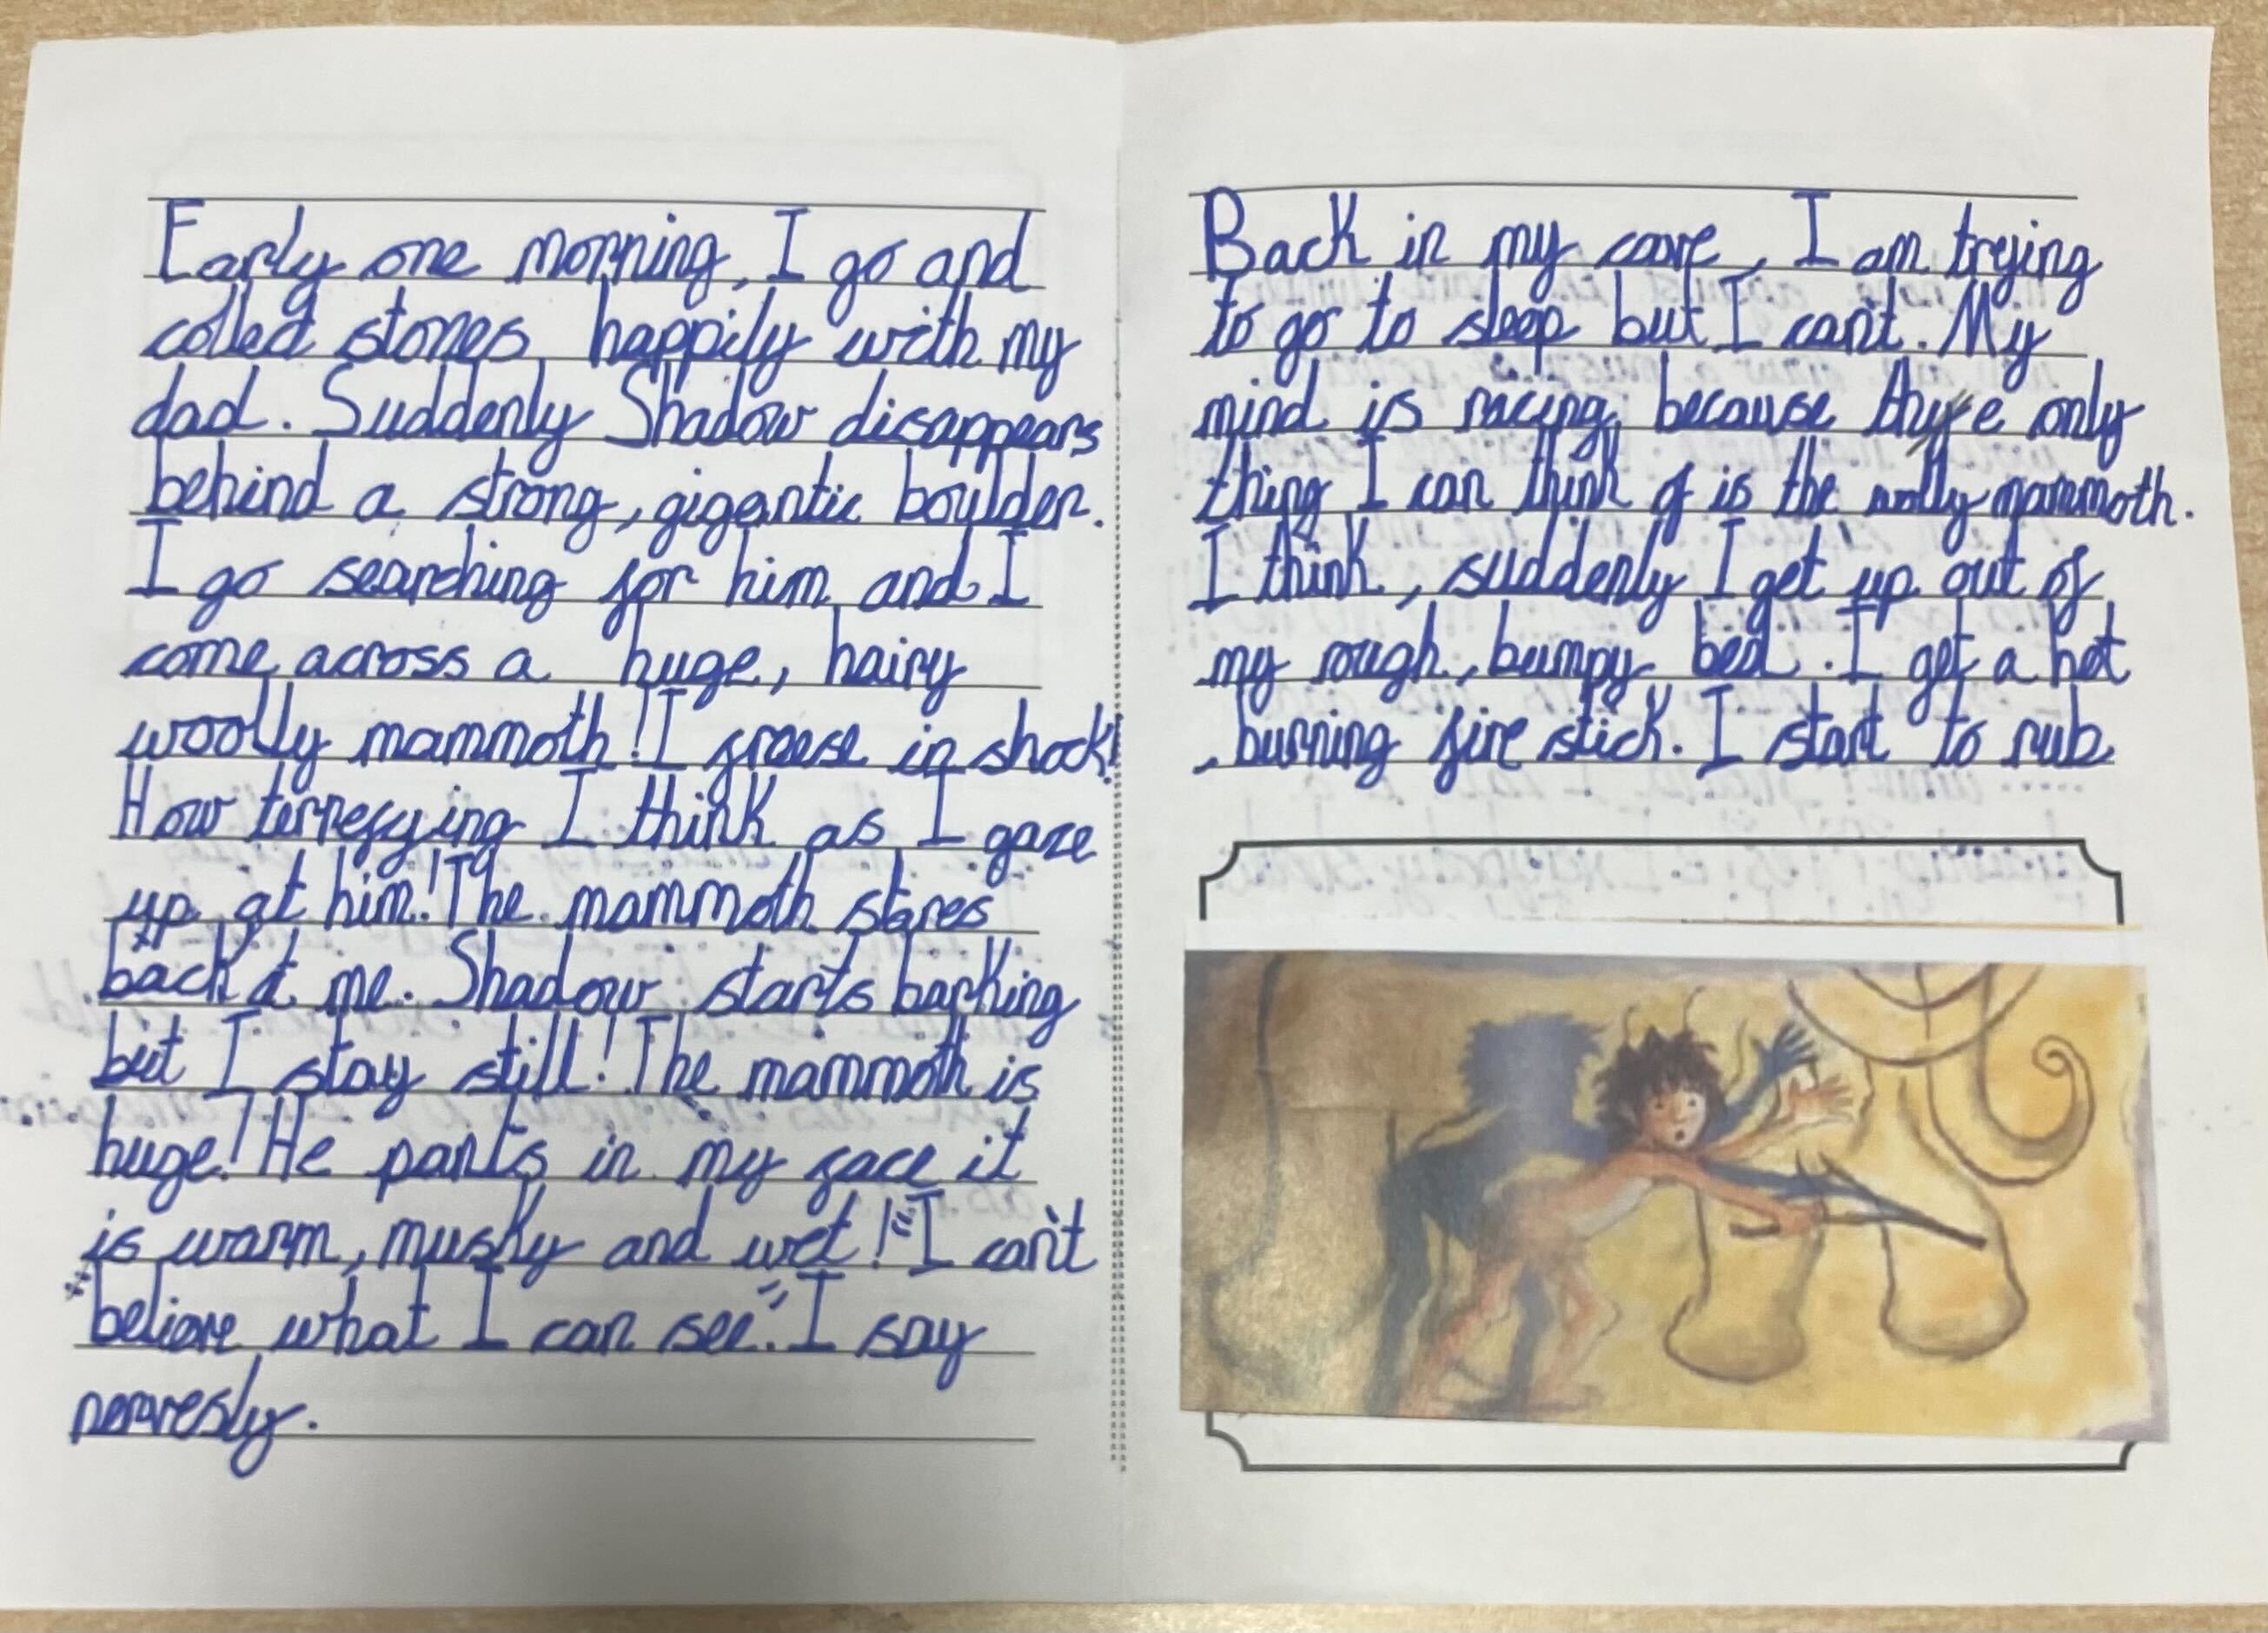 Early one morning, I go and
collect stones happily with my
dad. Suddenly Shadow disappears
behind a strong, gigantic boulder.
I go searching for him and I
come across a huge, hairy
woolly mammoth! I freese in shock!
How terrefying I think as I gaze
up at him! The mammoth stares
back at me. Shadow starts barking
but I stay still! The mammoth is
huge! He pants in my face it
is warm, musky and wet! "I can't
"believe what I can see." I say
nervesly.
Back in my cave, I am trying
to go to sleep but I can't. My
mind is racing because the only
thing I can think of is the wolly mammoth.
I think, suddenly I get up out of
my rough, bumpy bed. I get a hot
, burning fire stick. I start to rub